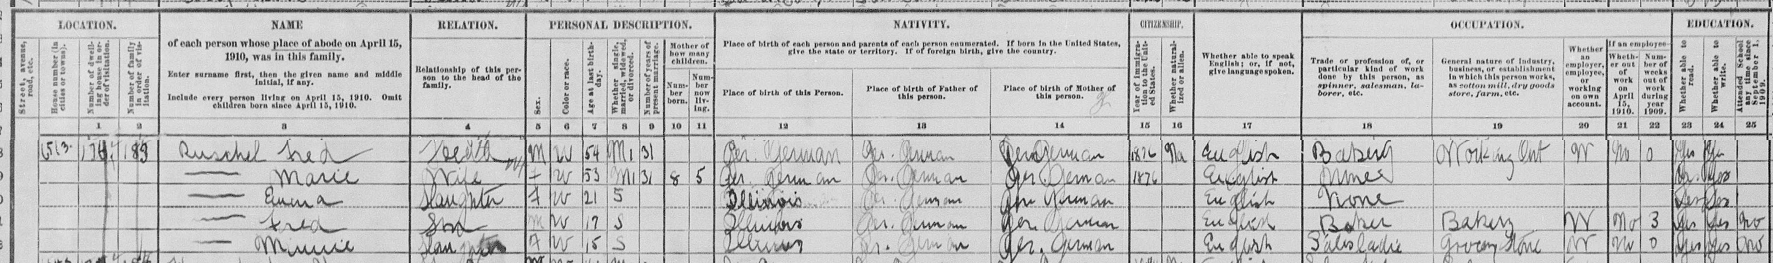 LOCATION. NAME RELATION. PERSONAL DESCRIPTION. NATIVITY. CITIZENSHIP. OCCUPATION. EDUCATION.
Street, avenue, road, etc.
House number (in cities or towns).
Number of dwelling house in order of visitation.
Number of family in order of visitation.
of each person whose place of abode on April 15, 1910, was in this family.
Enter surname first, then the given name and middle initial, if any.
Include every person living on April 15, 1910. Omit children born since April 15, 1910.
Relationship of this person to the head of the family.
Sex.
Color or race.
Age at last birthday.
Whether single, married, widowed, or divorced.
Number of years of present marriage.
Mother of how many children.
Number born.
Number now living.
Place of birth of each person and parents of each person enumerated. If born in the United States, give the state or territory. If of foreign birth, give the country.
Place of birth of this Person.
Place of birth of Father of this person.
Place of birth of Mother of this person.
Year of immigration to the United States.
Whether naturalized or alien.
Whether able to speak English; or, if not, give language spoken.
Trade or profession of, or particular kind of work done by this person, as spinner, salesman, laborer, etc.
General nature of industry, business, or establishment in which this person works, as cotton mill, dry goods store, farm, etc.
Whether an employer, employee, or working on own account.
If an employee—
Whether out of work on April 15, 1910.
Number of weeks out of work during year 1909.
Whether able to read.
Whether able to write.
Attended school any time since September 1, 1909.
1 2 3 4 5 6 7 8 9 10 11 12 13 14 15 16 17 18 19 20 21 22 23 24 25
189 Ruschel Fred M W 54 M1 31 Ger. German Ger. German Ger. German 1876 Na English Bakery Working Out W No 0 Yes Yes
Marie Wife F W 53 M1 31 8 5 Ger. German Ger. German Ger. German 1876 English None Yes
Emma Daughter F W 21 S Illinois Ger. German Ger. German English None Yes Yes
Fred Son M W 17 S Illinois Ger. German Ger. German English Baker Bakery W No 3 Yes Yes No
Minnie Daughter F W 15 S Illinois Ger. German Ger. German English Salesladie Grocery Store W No 0 Yes Yes No